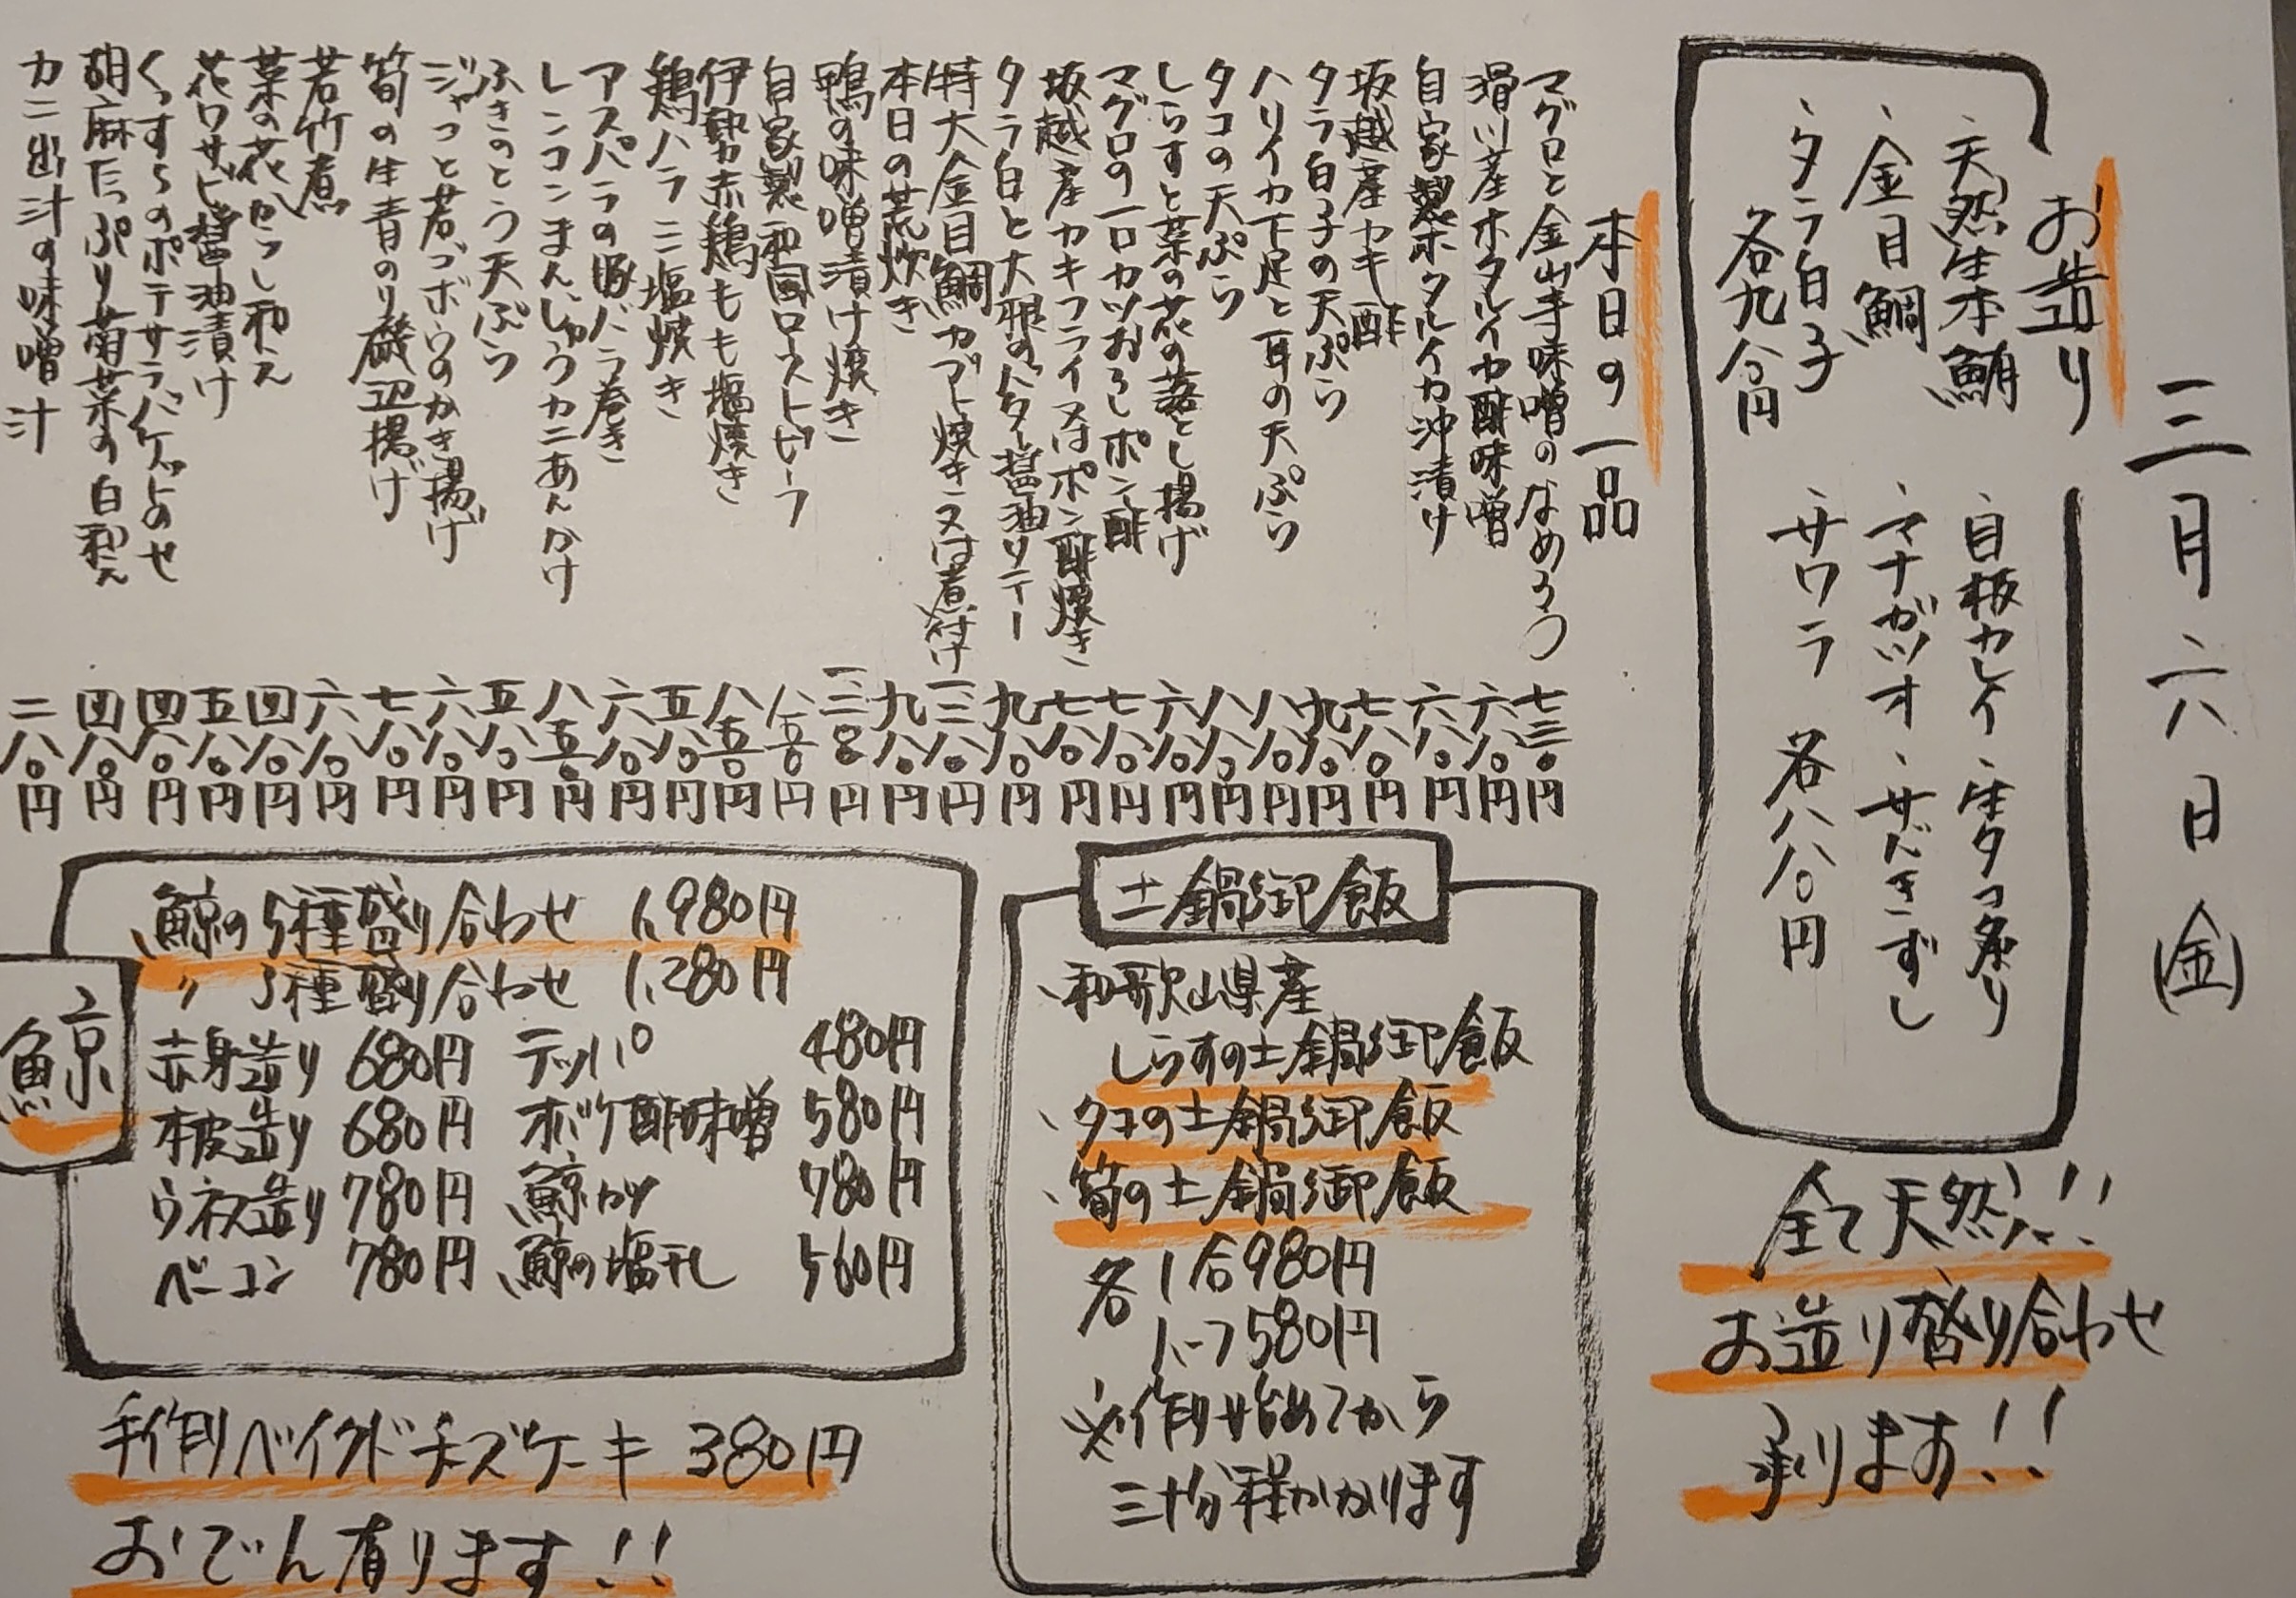 三月六日(金)
お造り
、天然生本鮪
、金目鯛
、タラ白子
各九八〇円
、目板カレイ、生タコ炙り
、マナガツオ、サバきずし
、サワラ
各八八〇円
全て天然!!
お造り盛り合わせ
承ります!!
本日の一品
マグロと金山寺味噌のなめろう 七三〇円
滑川産ホタルイカ酢味噌 六八〇円
自家製ホタルイカ沖漬け 六八〇円
坂越産カキ酢 七八〇円
タラ白子の天ぷら 九八〇円
ハリイカ下足と耳の天ぷら 八八〇円
タコの天ぷら 八八〇円
しらすと菜の花の落とし揚げ 六八〇円
マグロの一口カツおろしポン酢 七八〇円
坂越産カキフライ又はポン酢焼き 七八〇円
タラ白と大根のバター醤油ソテー 九八〇円
特大金目鯛カブト焼き又は煮付け 一三八〇円
本日の荒炊き 九八〇円
鴨の味噌漬け焼き 一二八〇円
自家製和国ローストビーフ 八五〇円
伊勢赤鶏もも塩焼き 八五〇円
鶏ハラミ塩焼き 五八〇円
アスパラの豚バラ巻き 六八〇円
レンコンまんじゅうカニあんかけ 八五〇円
ふきのとう天ぷら 五八〇円
ジャコと若ゴボウのかき揚げ 六八〇円
筍の生青のり磯辺揚げ 七八〇円
若竹煮 六八〇円
菜の花からし和え 四八〇円
花ワサビ醤油漬け 五八〇円
くっすらのポテサラバゲットのせ 四八〇円
胡麻たっぷり菊菜の白和え 四八〇円
カニ出汁の味噌汁 二八〇円
土鍋御飯
、和歌山県産
しらすの土鍋御飯
、タコの土鍋御飯
、筍の土鍋御飯
各 1合980円
ハーフ580円
※作り始めてから
三十分程かかります
鯨
鯨の5種盛り合わせ 1,980円
〃 3種盛り合わせ 1,280円
赤身造り 680円 テッパ 480円
本皮造り 680円 オバケ酢味噌 580円
ウネス造り 780円 鯨カツ 780円
ベーコン 780円 鯨の塩干し 560円
手作りベイクドチーズケーキ 380円
おでん有ります!!